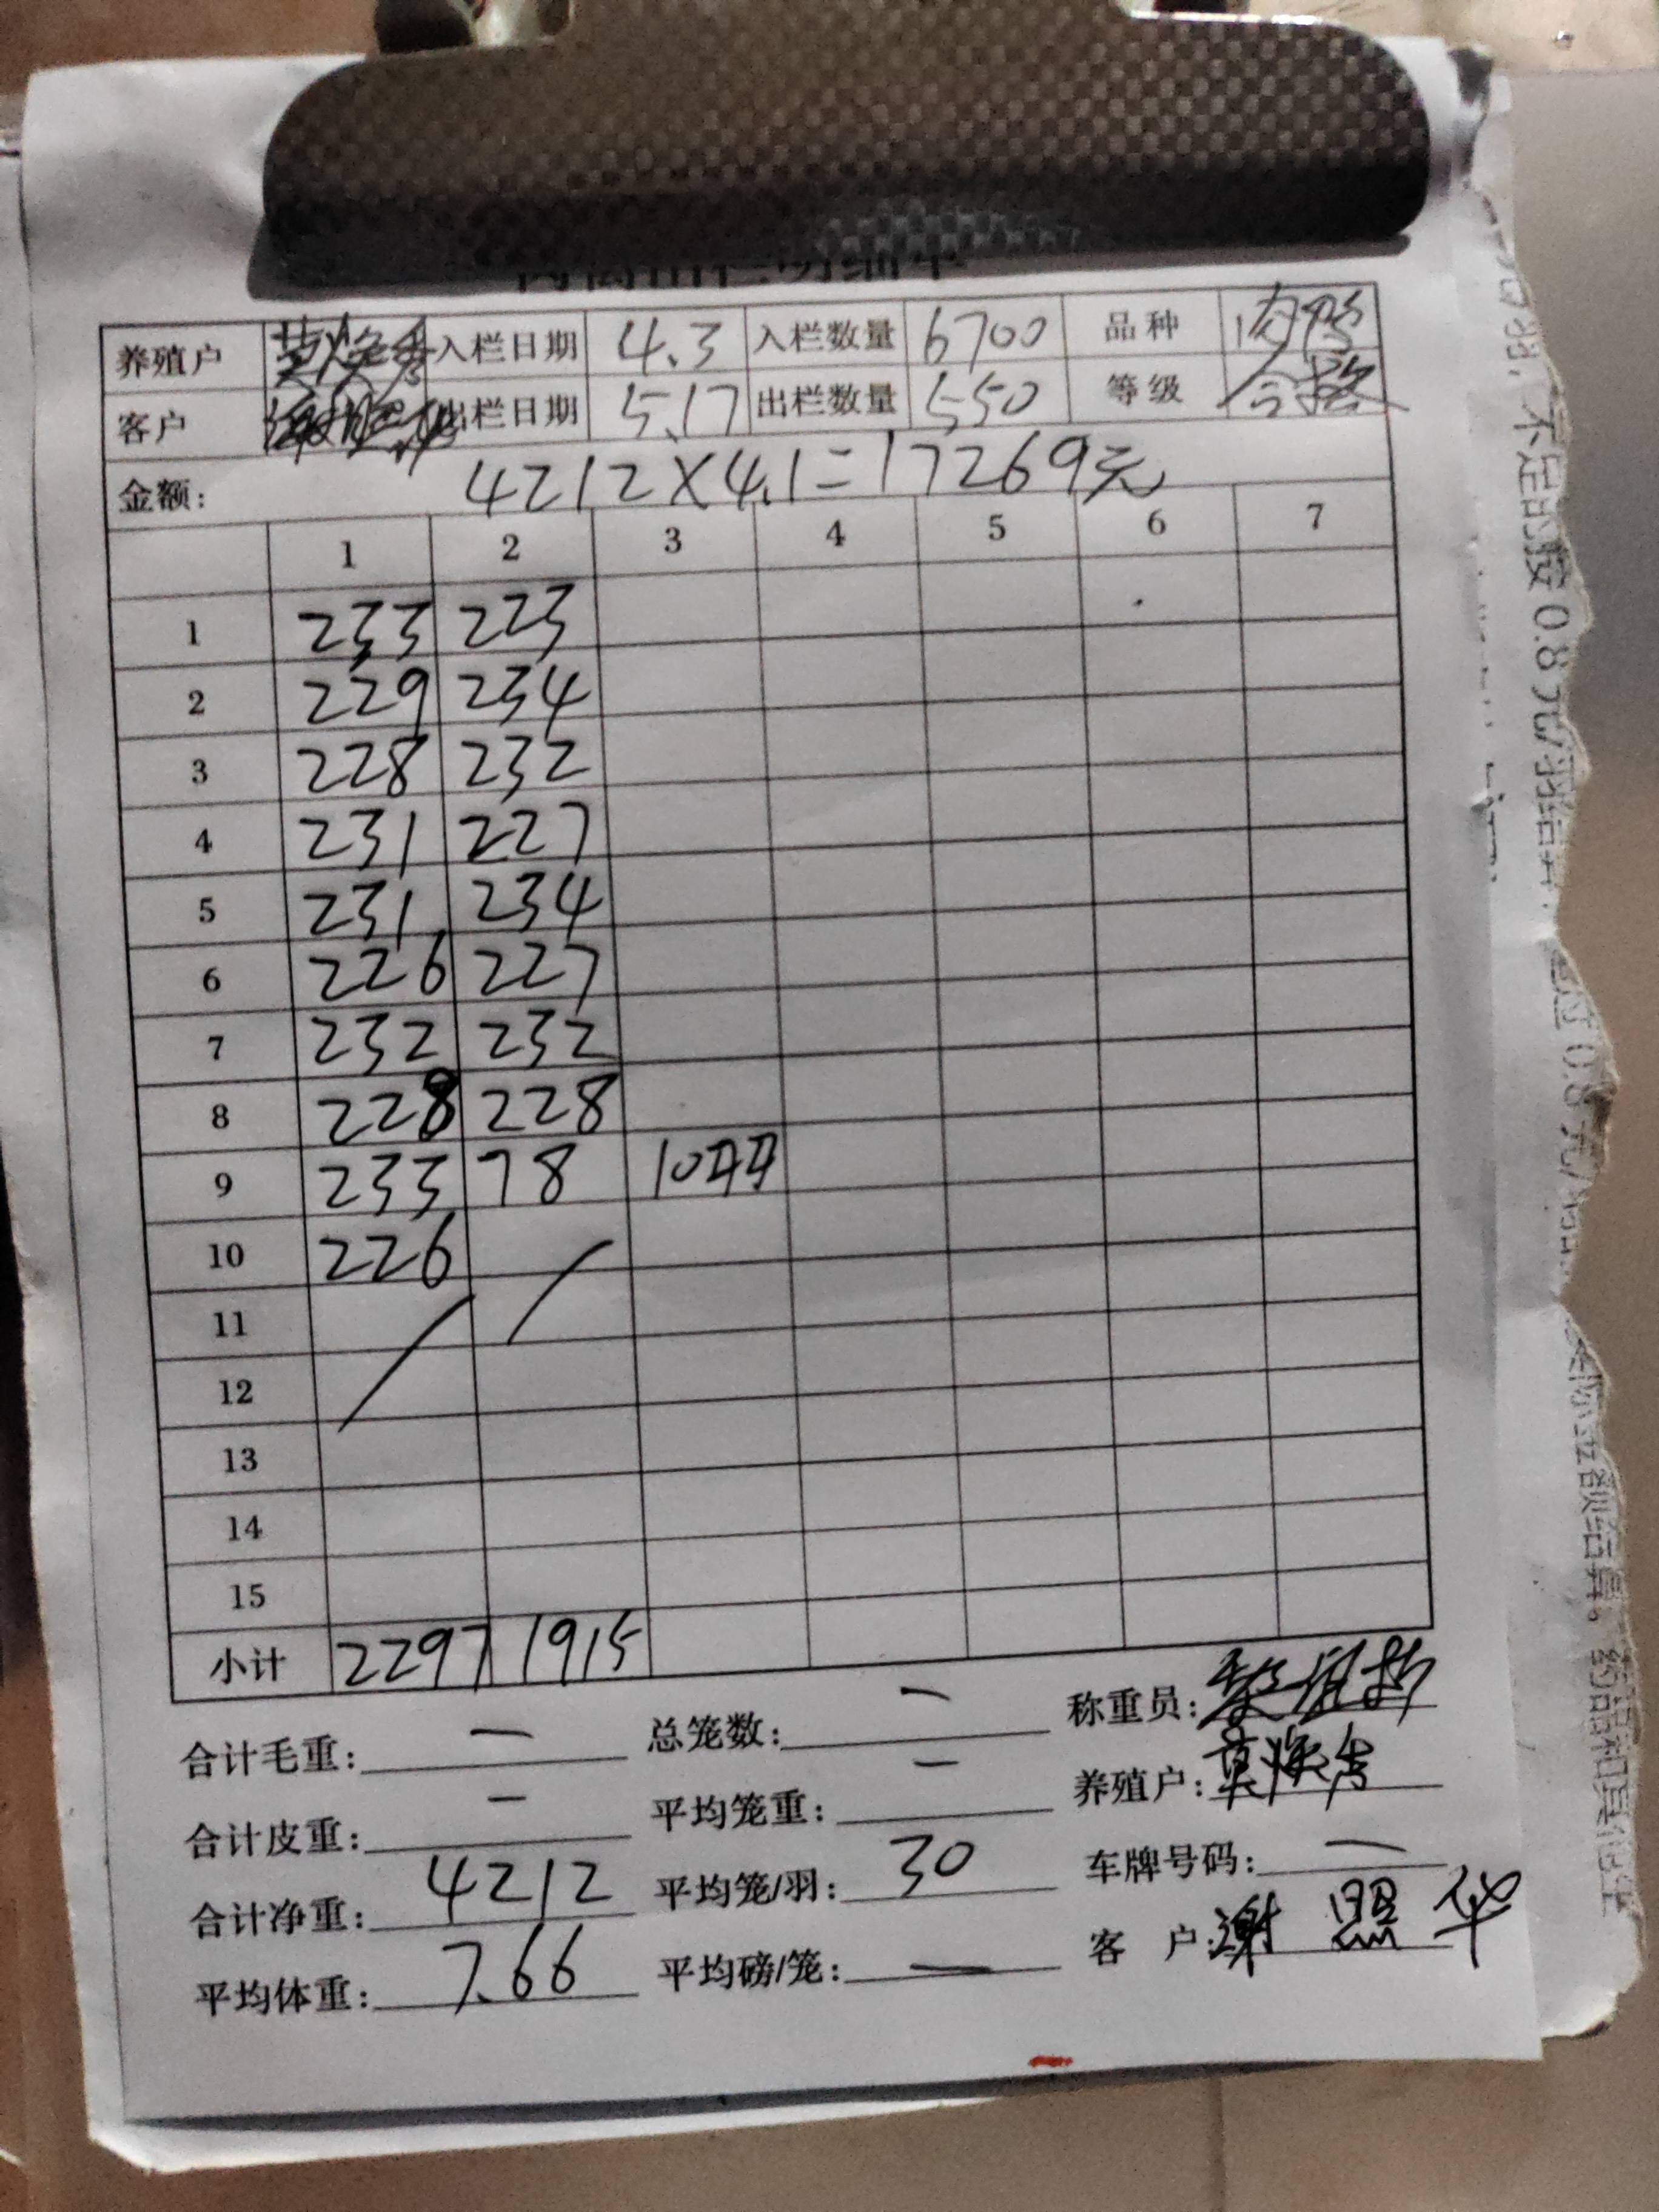 养殖户 入栏日期 4.3 入栏数量 6700 品种 肉鸭
客户 出栏日期 5.17 出栏数量 550 等级 合格
金额: 4212×4.1=17269元
1 2 3 4 5 6 7
1 233 223
2 229 234
3 228 232
4 231 227
5 231 234
6 226 227
7 232 232
8 228 228
9 233 78 10
10 226
11
12
13
14
15
小计 2297 1915
合计毛重: — 总笼数: — 称重员:
合计皮重: — 平均笼重: — 养殖户:
合计净重: 4212 平均笼/羽: 30 车牌号码: —
平均体重: 7.66 平均磅/笼: — 客 户: 谢照华